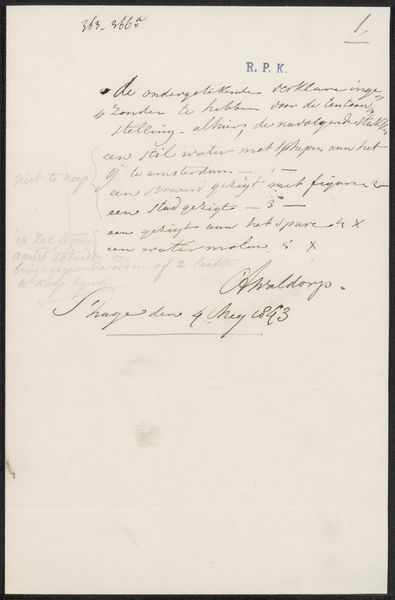 363-366a
1
R. P. K.
de ondergetekende verklare inge
zonden te hebben voor de tentoon
stelling alhier, de navolgende stukken
een stil water met schepen aan het
Y te amsterdam — 1 —
een strand gezigt met figuren 2
een stadgezigt — 3 —
een gezigt aan het spare 4 X
een watermolen 5 X
niet te koop
of 2 laatste
te koop
A Waldorp.
S'hage den 4 Mey 1843